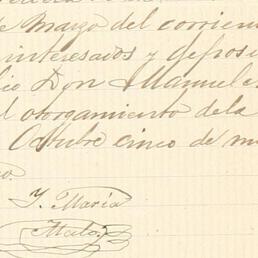 de Marzo del corrien
interesados y deposi
cio Don Manuel
l otorgamiento de la
Octubre cinco de m
o.
Y. María
Mato